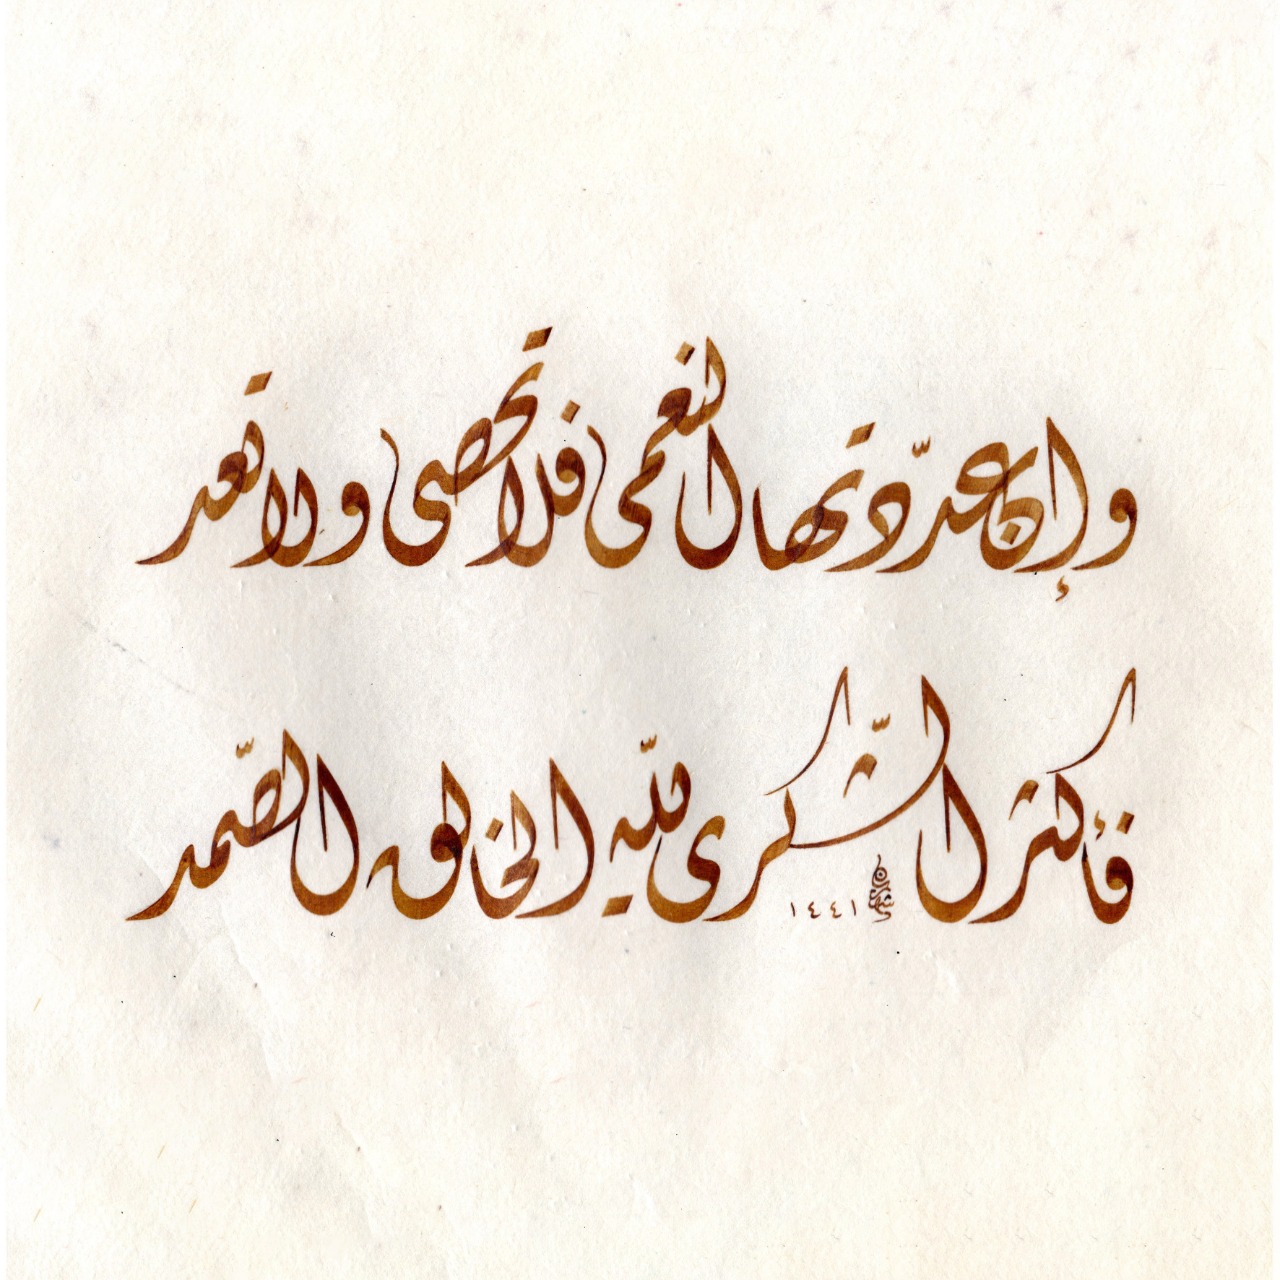 وإن عدّدتها النعمى فلا تحصى ولا تعد
فأكثر الشّكرى للّه الخالق الصّمد
١٤٤١